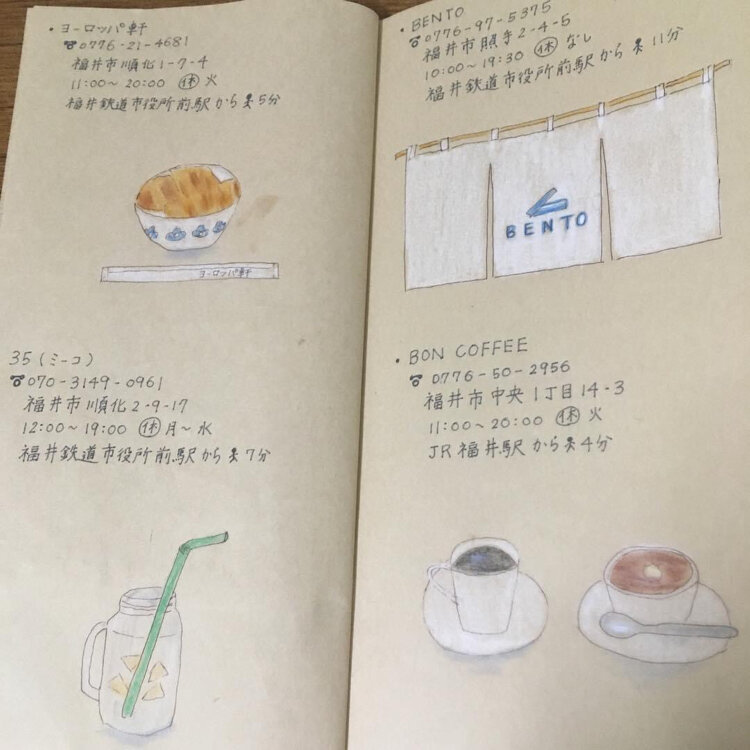 ・ヨーロッパ軒
☎0776-21-4681
福井市順化1-7-4
11:00~20:00 ㊡ 火
福井鉄道市役所前駅から 5分
ヨーロッパ軒
35(ミーコ)
☎070-3149-0961
福井市順化2-9-17
12:00~19:00 ㊡ 月~水
福井鉄道市役所前駅から 7分
・BENTO
☎0776-97-5375
福井市照手2-4-5
10:00~19:30 ㊡ なし
福井鉄道市役所前駅から 11分
BENTO
・BON COFFEE
☎0776-50-2956
福井市中央1丁目14-3
11:00~20:00 ㊡ 火
JR福井駅から 4分